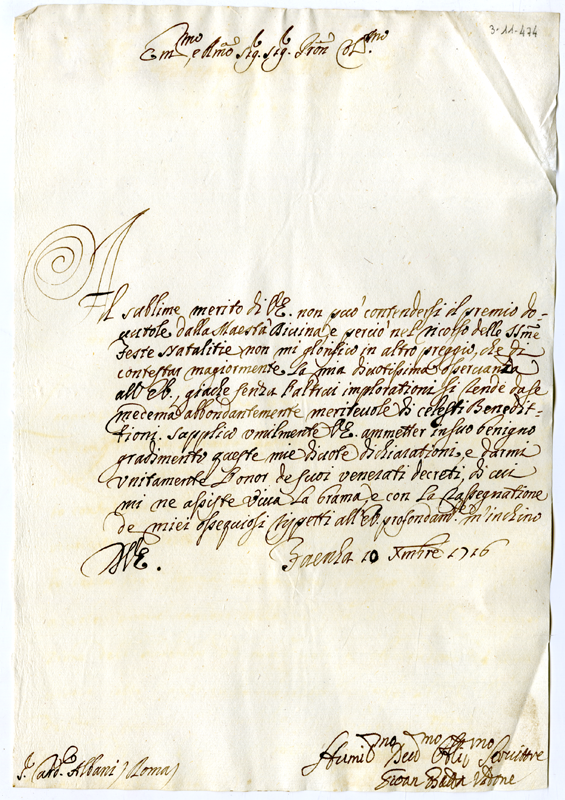 3-11-474
Em.mo e Rmo Sig. Sig. Pron Col.mo
Al sublime merito di V.E. non può contendersi il premio do-
vutole dalla Maestà Divina e perciò nel ricorso delle SSme
Feste Natalitie non mi glorifico in altro preggio, che di
contestar magiormente la mia divotissima osservanza
all' E.V., giache senza l'altrui implorationi si rende da se
medema abbondantemente meritevole di celesti Benedit-
tioni. Supplico umilmente V.E. ammetter in suo benigno
gradimento queste mie divote dichiarationi, e darmi
unitamente l'onor de suoi venerati decreti, di cui
mi ne assiste viva la brama, e con la rassegnatione
de miei ossequiosi rispetti all' E.V. profondam.te m'inchino
D.V.E. Faenza 10 Xmbre 1716
S.r Card. Albani Roma
Humil.mo Devo.mo Obli.mo Servitore
Giovan Batta